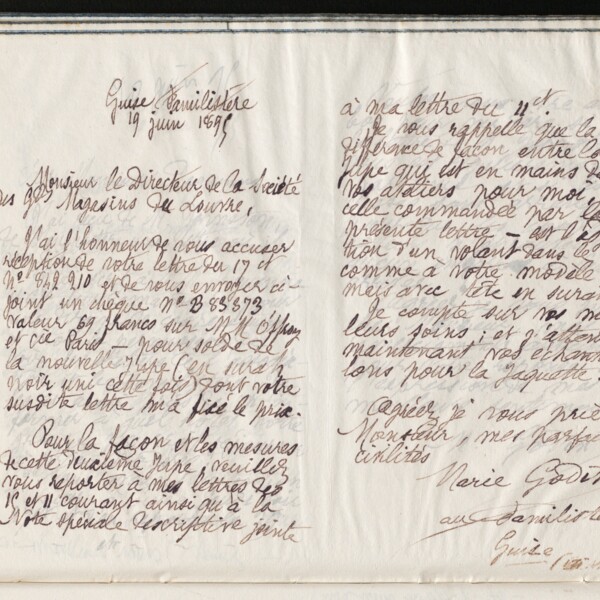 Guise Familistère
19 juin 1895
Monsieur le Directeur de la Société
des Gds Magasins du Louvre,
J'ai l'honneur de vous accuser
réception de votre lettre du 17 ct
N° 842 210 et de vous envoyer ci-
joint un chèque N° B 83873
valeur 69 francs sur MM
et cie Paris — pour solde de
la nouvelle jupe (en surah
noir uni cette fois) dont votre
susdite lettre m'a fixé le prix.
Pour la façon et les mesures
de cette deuxième jupe, veuillez
vous reporter à mes lettres des
15 et 11 courant ainsi qu'à la
Note spéciale descriptive jointe
à ma lettre du 11 ct.
Je vous rappelle que la
différence de façon entre la
jupe qui est en mains de
vos ateliers pour moi,
celle commandée par la
présente lettre — est l'
tion d'un volant dans le
comme à votre modèle
mais avec tête en surah
Je compte sur vos
leurs soins ; et j'atten
maintenant vos échantil
lons pour la jaquette.
Agréez, je vous prie
Monsieur, mes parfai
civilités
Marie Godin
au Familistè
Guise